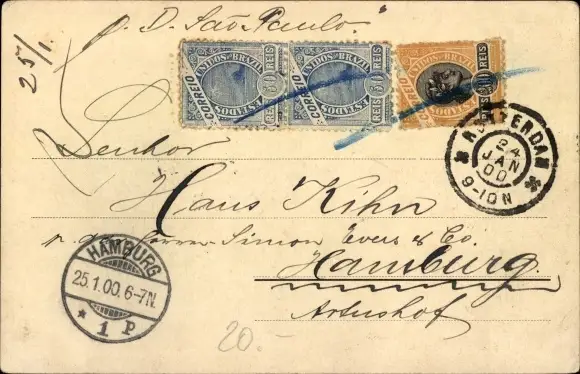 p. D. "São Paulo".
25/1.
CORREIO ESTADOS UNIDOS DO BRAZIL 50 REIS
CORREIO ESTADOS UNIDOS DO BRAZIL 50 REIS
CORREIO ESTADOS UNIDOS DO BRAZIL REIS
AMSTERDAM
24
JAN
00
9-10N
Senhor
Hans Kihn
p. Simon Evers & Co.
Hamburg.
Artushof
HAMBURG
25.1.00.6-7N.
* 1 P
20.-